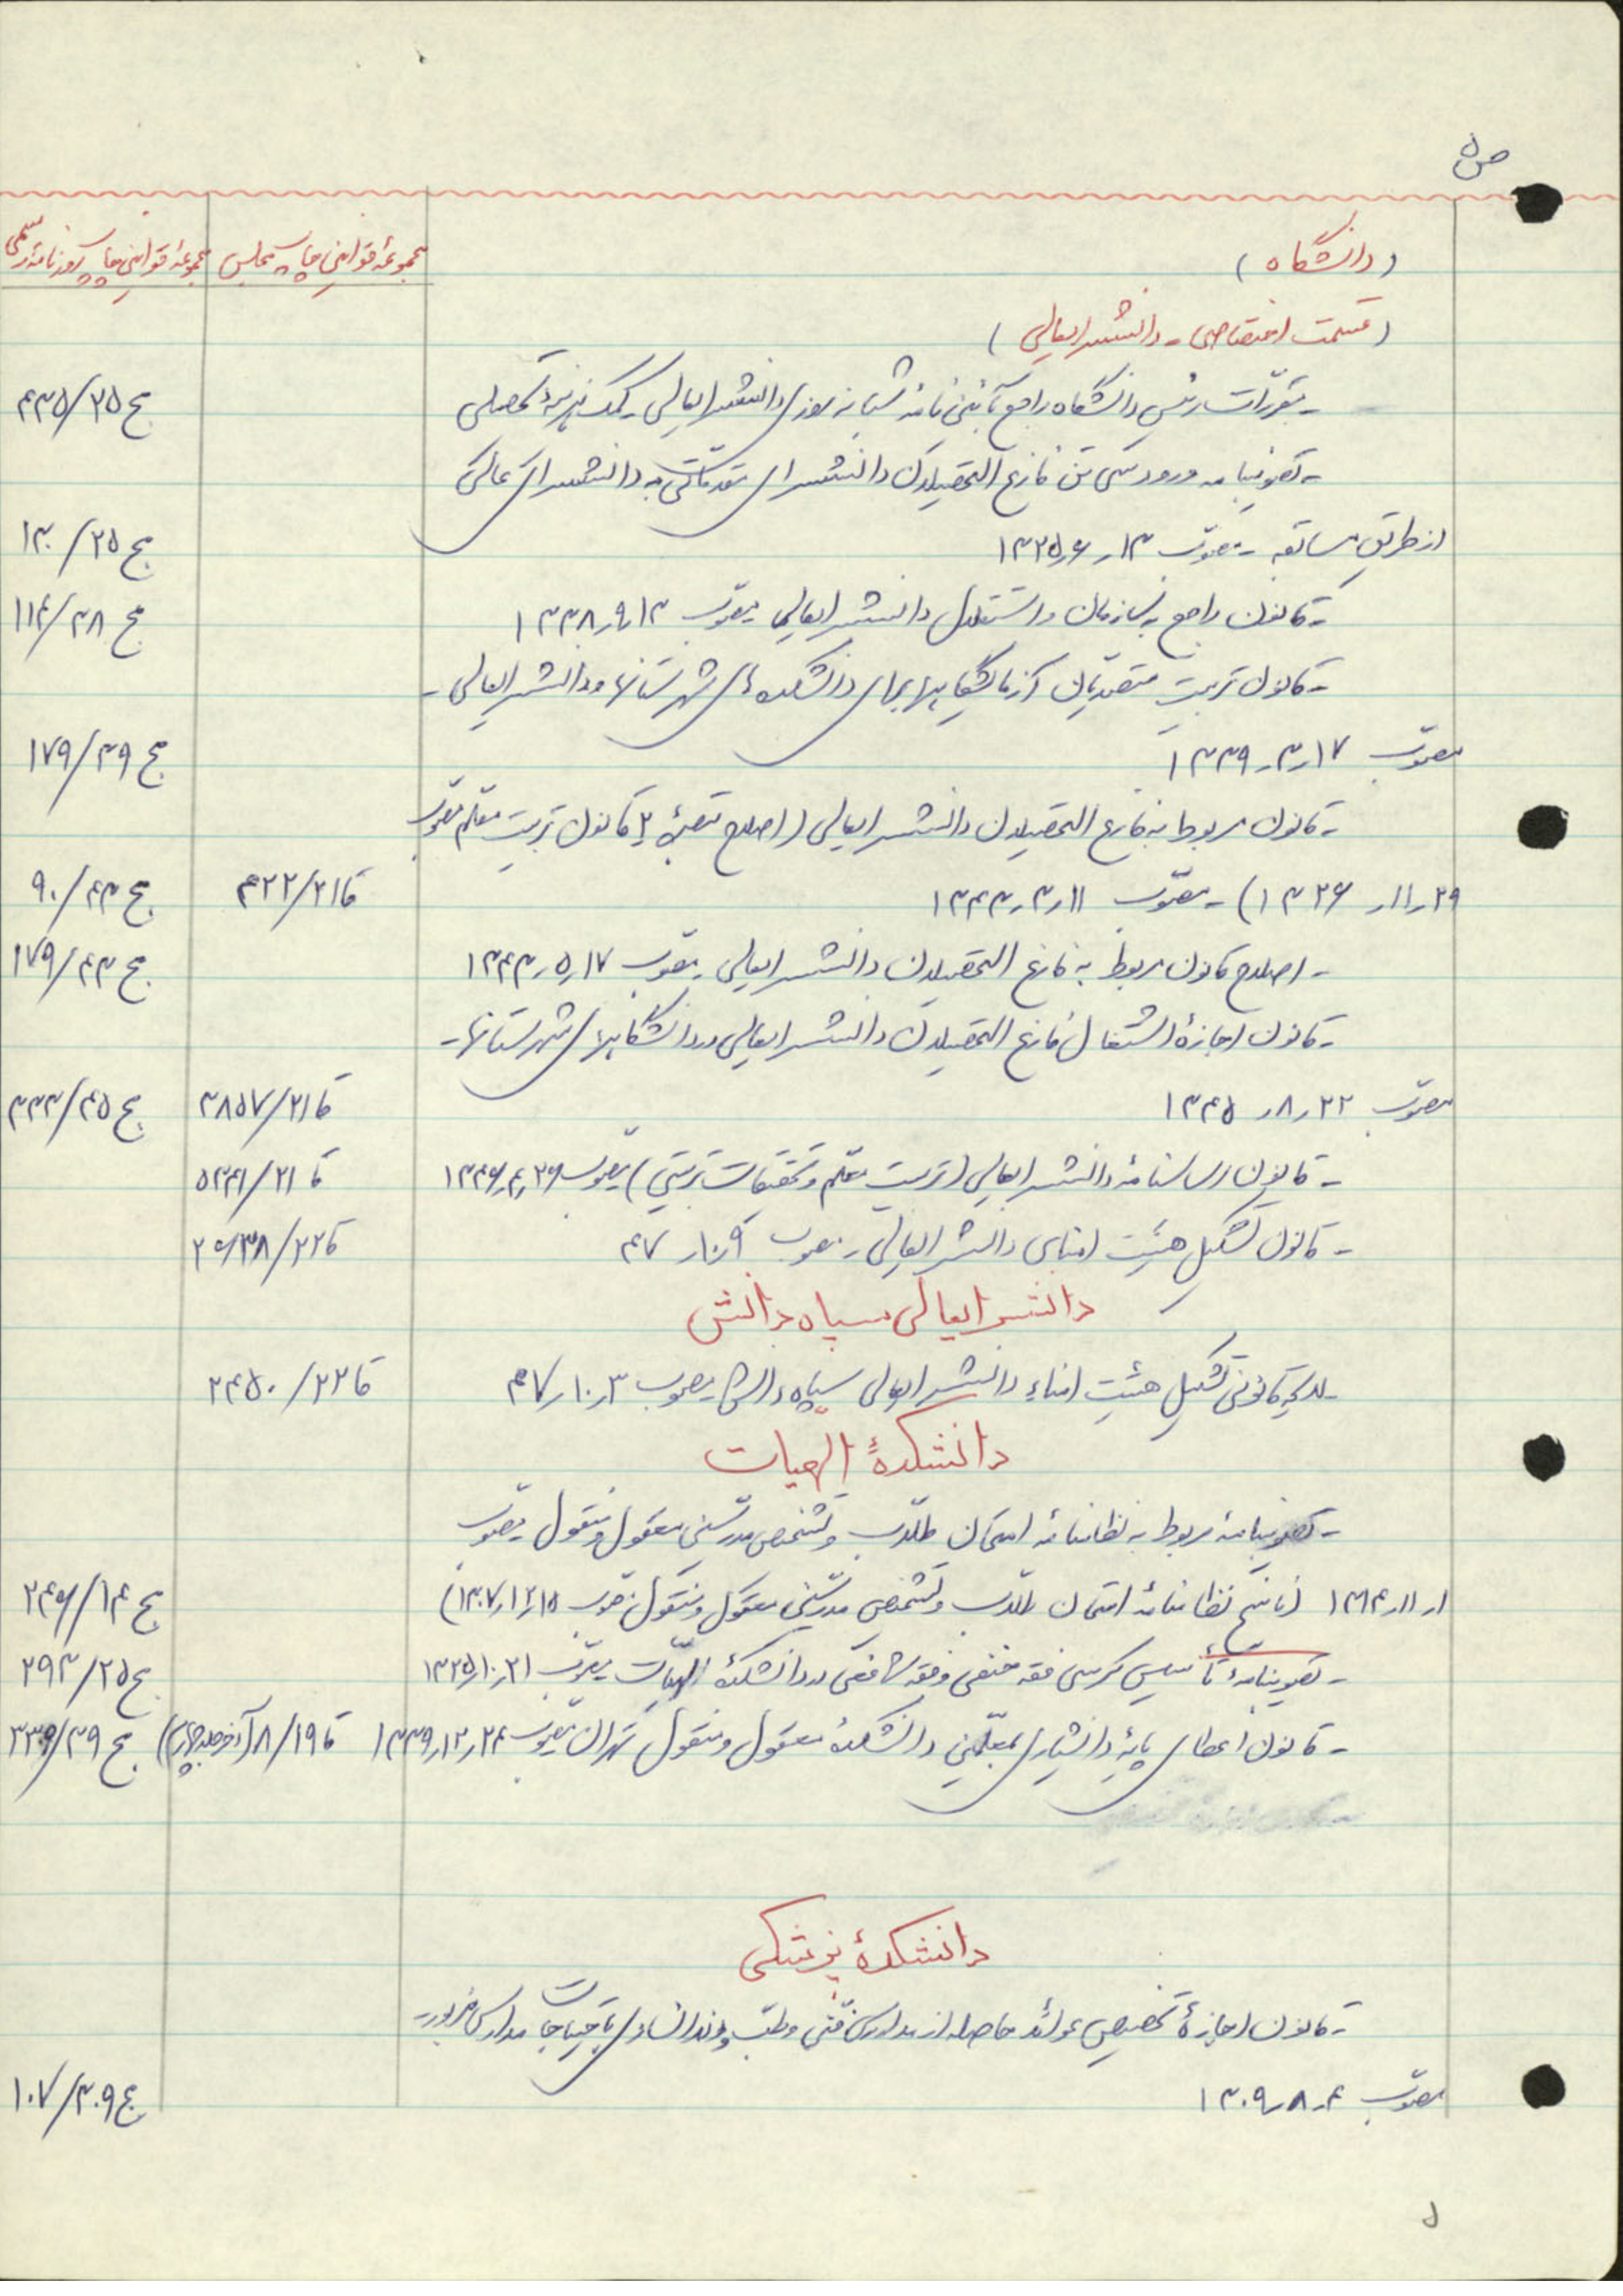 ص ۵
(دانشگاه)
مجموعهٔ قوانین چاپ مجلس
مجموعهٔ قوانین چاپ روزنامه رسمی
(قسمت اختصاصی - دانشسرایعالی)
- مقررات رئیس دانشگاه راجع بآئین نامه شبانه روزی دانشسرایعالی و کمک هزینهٔ تحصیلی ج ۲۵/۴۳۵
- تصویبنامه ورود سی تن فارغ التحصیلان دانشسرای مقدماتی به دانشسرای عالی
از طریق مسابقه - مصوب ۱۳ر۶ر۱۳۲۵ ج ۲۵/۱۳۰
- قانون راجع بسازمان و استقلال دانشسرایعالی مصوب ۱۳ر۹ر۱۳۳۸ ج ۳۸/۱۱۴
- قانون تربیت متصدیان آزمایشگاهها برای دانشکده‌های شهرستانها و دانشسرایعالی -
مصوب ۱۷ر۳ر۱۳۳۹ ج ۳۹/۱۷۹
- قانون مربوط به فارغ التحصیلان دانشسرایعالی (اصلاح تبصرهٔ ۲ قانون تربیت معلم مصوب
۲۹ر۱۱ر۱۳۲۶) - مصوب ۱۱ر۳ر۱۳۴۳ ق ۲۱/۴۲۲ ج ۴۳/۹۰
- اصلاح قانون مربوط به فارغ التحصیلان دانشسرایعالی مصوب ۱۷ر۵ر۱۳۴۳ ج ۴۳/۱۷۹
- قانون اجازهٔ اشتغال فارغ التحصیلان دانشسرایعالی در دانشگاههای شهرستانها -
مصوب ۲۲ر۸ر۱۳۴۵ ق ۲۱/۳۸۵۷ ج ۴۵/۳۳۳
- قانون اساسنامهٔ دانشسرایعالی (تربیت معلم و تحقیقات تربیتی) مصوب ۲۶ر۴ر۱۳۴۶ ق ۲۱/۵۳۴۱
- قانون تشکیل هیئت امنای دانشسرایعالی - مصوب ۹ر۱۰ر۴۷ ق ۲۲/
دانشسرایعالی سپاه دانش
- لایحهٔ قانونی تشکیل هیئت امناء دانشسرایعالی سپاه دانش مصوب ۳ر۱۰ر۴۷ ق ۲۲/۲۴۵۰
دانشکدهٔ الهیات
- تصویبنامه مربوط به نظامنامه امتحان طلاب و تشخیص مدرسین معقول و منقول مصوب
۱ر۱۱ر۱۳۱۴ (ناسخ نظامنامه امتحان طلاب و تشخیص مدرسین معقول و منقول مصوب ۱۵ر۱۲ر۱۳۰۷) ج ۱۴/
- تصویبنامهٔ تأسیس کرسی فقه حنفی و فقه شافعی در دانشکدهٔ الهیات مصوب ۲۱ر۱۰ر۱۳۲۵ ج ۲۵/۲۹۳
- قانون اعطای پایهٔ دانشیاری بمعلمین دانشکدهٔ معقول و منقول تهران مصوب ۲۴ر۱۲ر۱۳۳۹ ق ۱۹/۸ (آخر جلد چهارم) ج ۳۹/
دانشکدهٔ پزشکی
- قانون اجازهٔ تخصیص عوائد حاصله از مدارس فنی و طب و دندانسازی باحتیاجات مدارس مزبور -
مصوب ۴ر۸ر۱۳۰۹ ج ۳۰۹/۱۰۷
۵